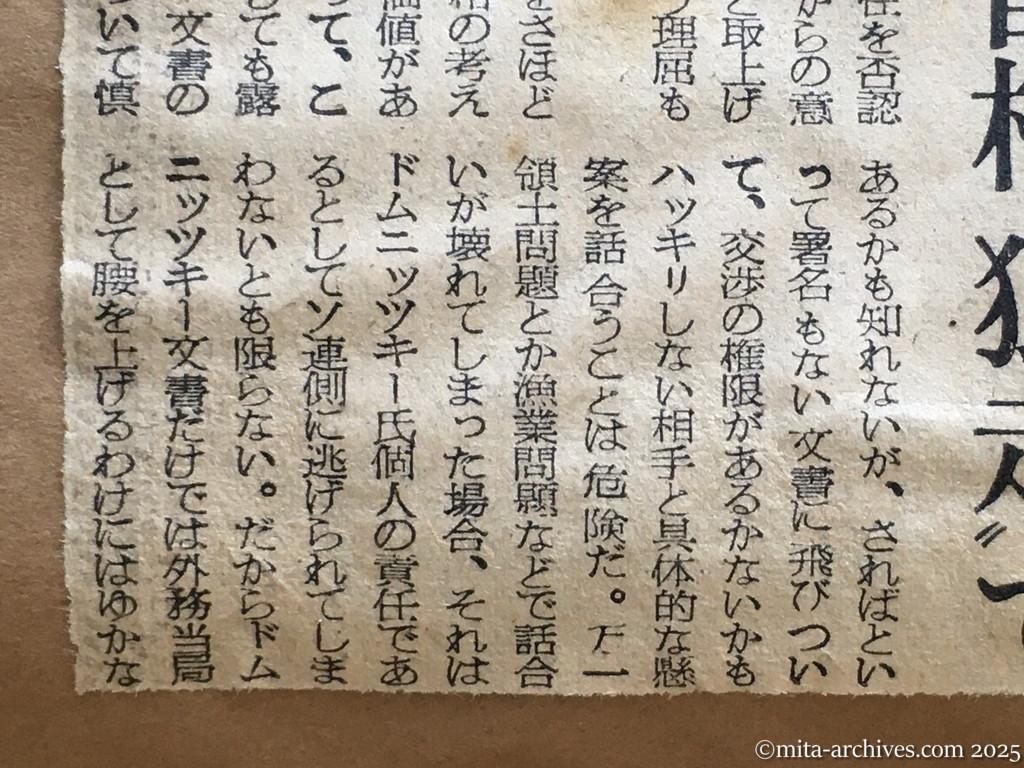 任を否認
からの意
と取上げ
う理屈も
をさほど
相の考え
価値があ
って、こ
しても露
文書の
いて慎
あるかも知れないが、さればとい
って署名もない文書に飛びつい
て、交渉の権限があるかないかも
ハッキリしない相手と具体的な懸
案を話合うことは危険だ。万一
領土問題とか漁業問題などで話合
いが壊れてしまった場合、それは
ドムニッツキー氏個人の責任であ
るとしてソ連側に逃げられてしま
わないとも限らない。だからドム
ニッツキー文書だけでは外務当局
として腰を上げるわけにはゆかな
©mita-archives.com 2025